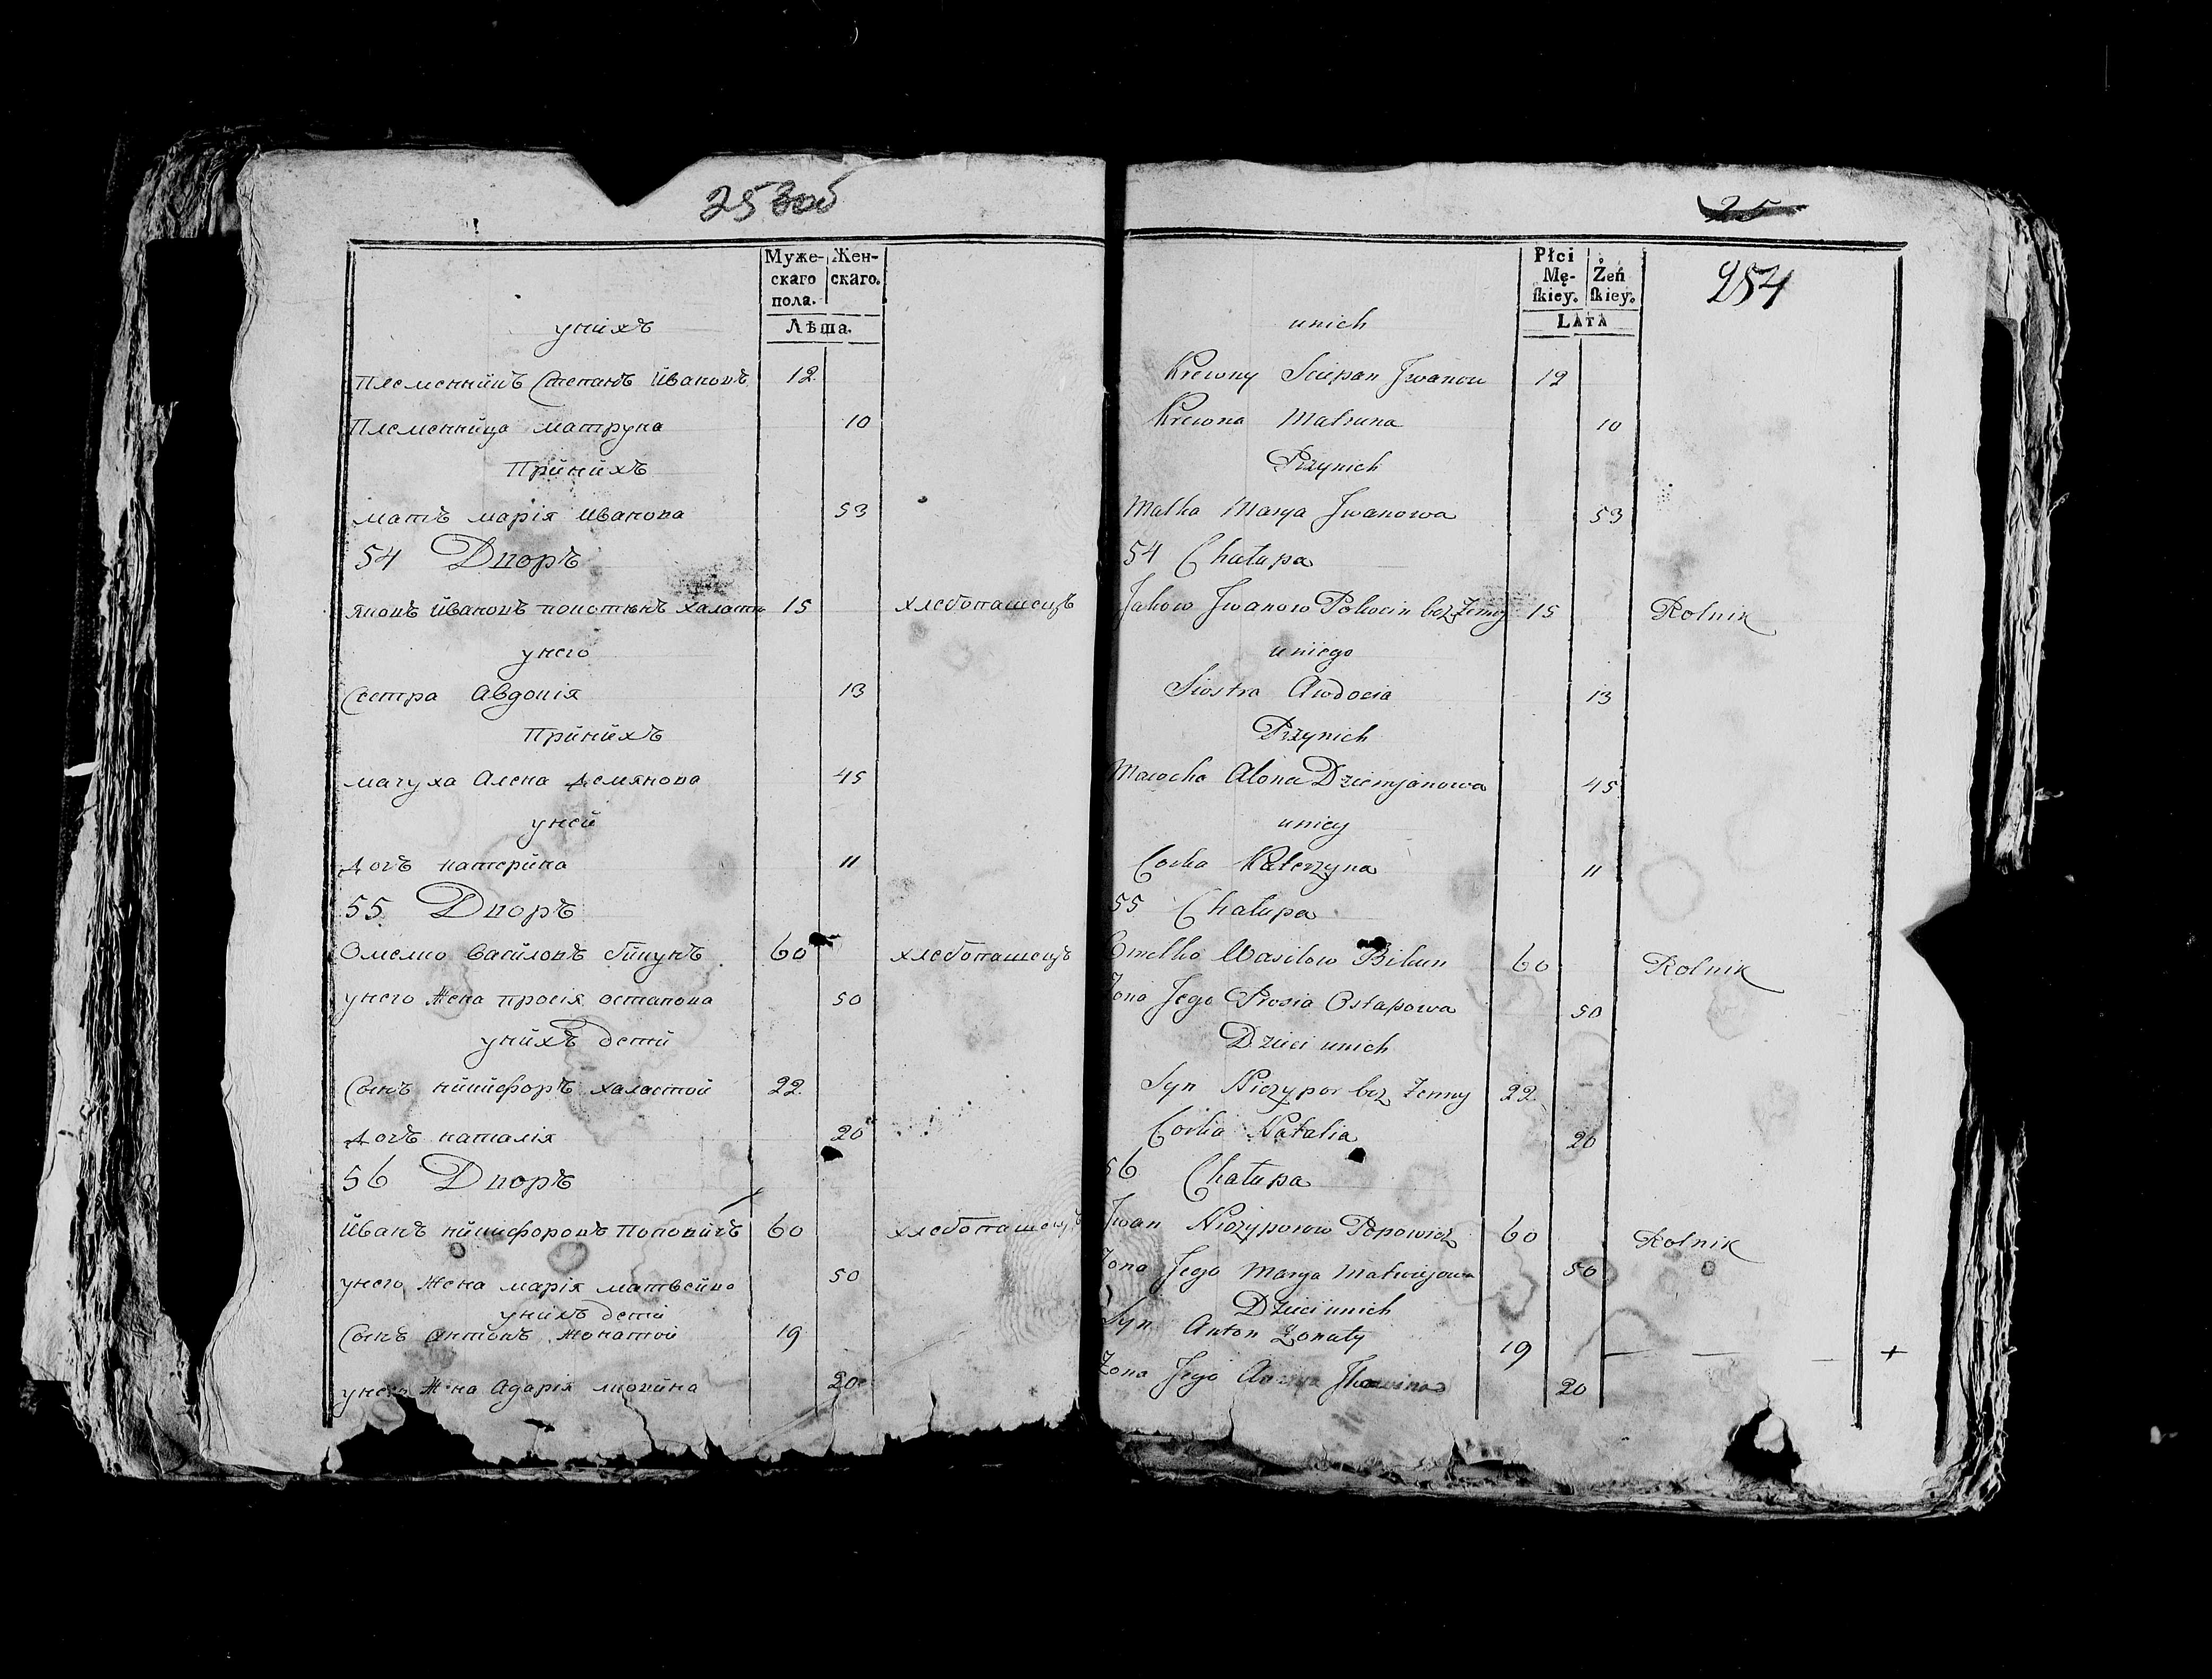 253 об
Муже-
скаго
пола.
Жен-
скаго.
Лѣта.
унйхъ
Племеннйкъ Степанъ Йвановъ 12
Племеннйца матруна 10
Прйнйхъ
мать марія Иванова 53
54 Дворъ
Яковъ Йвановъ халасты 15 хлебопашецъ
унего
Сестра Авдокія 13
Прйнйхъ
мачуха Алена Демянова 45
уней
Дочь катерйна 11
55 Дворъ
Омелко Васйловъ бйкунъ 60 хлебопашецъ
унего жена просія остапова 50
унйхъ детй
Сынъ нйкйфоръ халастой 22
Дочь наталія 20
56 Дворъ
Йванъ нйкйфоровъ Поповйчъ 60 хлебопашецъ
унего жена марія матвейва 50
унйхъ детй
Сынъ антонъ жонатой 19
унего жена Адарія 20
25
254
Płci
Mę-
ſkiey.
Żeń
ſkiey.
LATA
unich
Krewny Sciepan Jwanow 12
Krewna Matruna 10
Przynich
Matka Marya Jwanowa 53
54 Chałupa
Jakow Jwanow Pokocin bez Żenny 15 Rolnik
uniego
Siostra Awdocia 13
Przynich
Macocha Alona Dziemjanowa 45
unicy
Corka Katerzyna 11
55 Chałupa
Omelko Wasilow Bikun 60 Rolnik
Zona Jego Prosia Ostapowa 50
Dzieci unich
Syn Niczypor bez Żenny 22
Corka Natalia 20
56 Chałupa
Jwan Niczyporow Popowicz 60 Rolnik
Zona Jego Marya Matwiejowa 50
Dzieci unich
Syn Anton Żonaty 19 +
Zona Jego 20